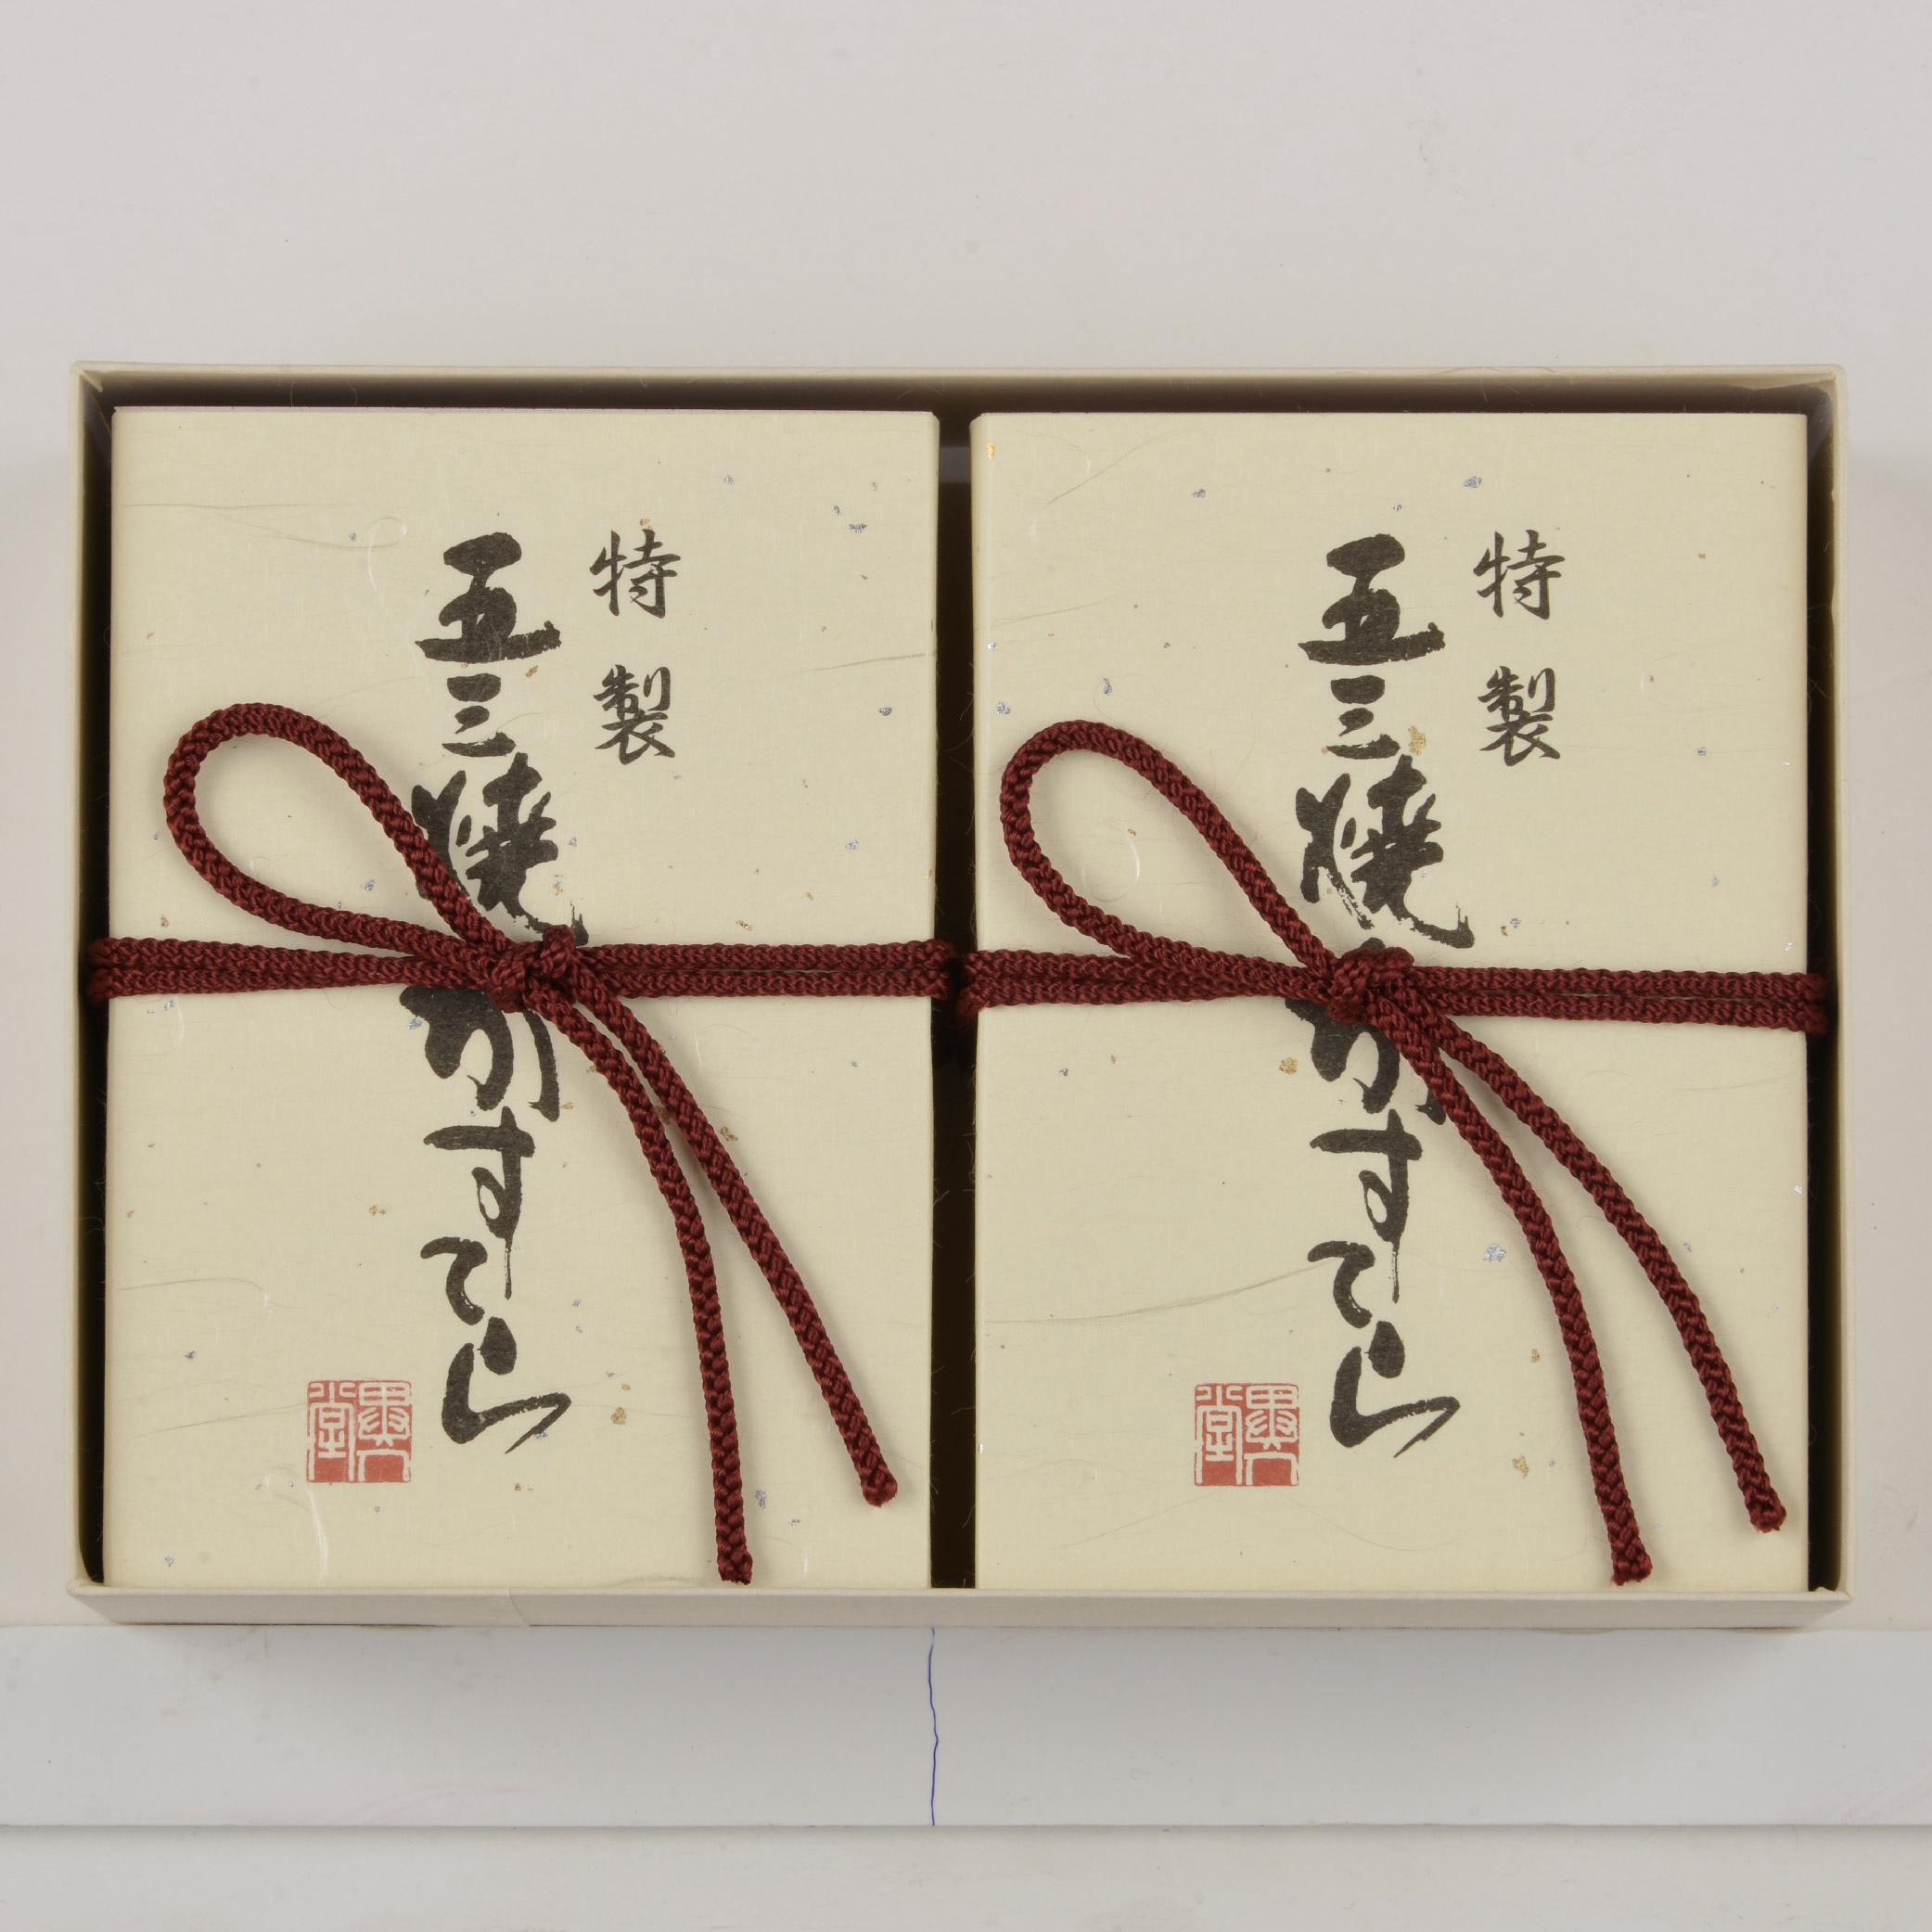 特製
五三焼かすてら
特製
五三焼かすてら